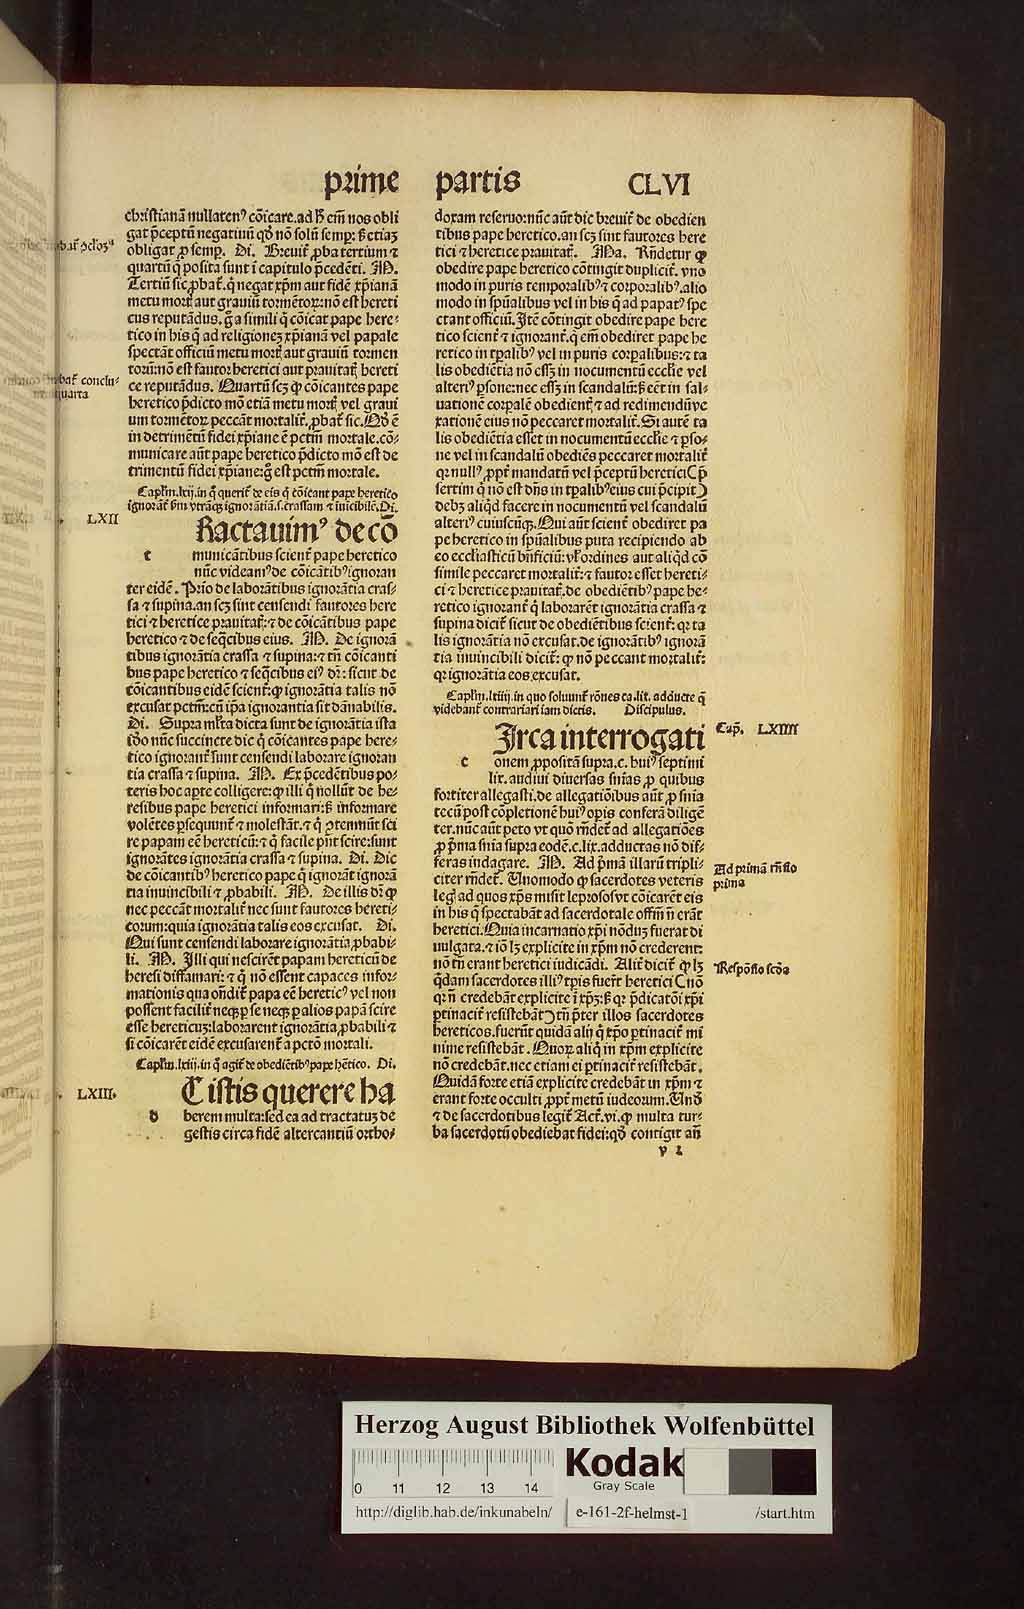 prime partis CLVI
christianā nullatenꝰ cōicare. ad hᷓ em̄ nos obli
gat p̄ceptū negatiuū qđ nō solū semꝑ: sꝫ etiaꝫ
obligat ꝓ semꝑ. Di. Breuit̄ ꝓba tertium ⁊
quartū q̄ posita sunt ī capitulo p̄cedēti. M.
Tertiū sic ꝓbat̄. q̇ negat xp̄m aut fidē xp̄ianā
metu mort̄ aut grauiū tormētoꝝ: nō est hereti
cus reputādus. g̊ a simili q̇ cōicat pape here⸗
tico in his q̄ ad religioneꝫ xp̄ianā vel papale
spectāt officiū metu mort̄ aut grauiū tormen
torū: nō est fautor heretici aut prauitat̄ hereti
ce reputādus. Quartū scꝫ ꝙ cōicantes pape
heretico p̄dicto mō etiā metu mort̄ vel graui
um tormētoꝝ peccāt mortalit̄. ꝓbat̄ sic. Qđ ē
in detrimētū fidei xp̄iane ē pctm̄ mortale. cō⸗
municare aūt pape heretico p̄dicto mō est de
trimentū fidei xp̄iane: g̊ est pctm̄ mortale.
Caplm̄. lxij. in q̊ querit̄ de eis q̇ cōicant pape heretico
ignorāt̄ ẜm vtrāqꝫ ignorātiā. s. crassam ⁊ īuicibilē. Di.
LXII
Ractauimꝰ de cō
t municātibus scient̄ pape heretico
nūc videamꝰ de cōicātibꝰ ignoran
ter eidē. Prīo de laborātibus ignorātia cras⸗
sa ⁊ supina. an scꝫ sint censendi fautores here
tici ⁊ heretice prauitat̄: ⁊ de cōicātibus pape
heretico ⁊ de seq̄cibus eius. M. De ignorā
tibus ignorātia crassa ⁊ supina: ⁊ tn̄ cōicanti
bus pape heretico ⁊ seq̄cibus eiꝰ dr̄: sicut de
cōicantibus eidē scient̄: ꝙ ignorātia talis nō
excusat pctm̄: cū ip̄a ignorantia sit dānabilis.
Di. Supra ml̄ta dicta sunt de ignorātia ista
iđo nūc succincte dic q̇ cōicantes pape here⸗
tico ignorant̄ sunt censendi laborare ignoran
tia crassa ⁊ supina. M. Ex p̄cedētibus po⸗
teris hoc apte colligere: ꝙ illi q̇ nollūt de he⸗
resibus pape heretici informari: sꝫ informare
volētes ꝑsequunt̄ ⁊ molestāt. ⁊ q̇ ꝯtemnūt sci
re papam eē hereticū: ⁊ q̇ facile pn̄t scire: sunt
ignorātes ignorātia crassa ⁊ supina. Di. Dic
de cōicantibꝰ heretico pape q̇ ignorāt ignorā
tia inuincibili ⁊ ꝓbabili. M. De illis dr̄ ꝙ
nec peccāt mortalit̄ nec sunt fautores hereti⸗
corum: quia ignorātia talis eos excusat. Di.
Qui sunt censendi laborare ignorātia ꝓbabi⸗
li. M. Illi qui nescirēt papam hereticū de
heresi diffamari: ⁊ q̇ nō essent capaces infor⸗
mationis qua ondit̄ papa eē hereticꝰ vel non
possent facilit̄ neqꝫ ꝑ se neqꝫ ꝑ alios papā scire
esse hereticuꝫ: laborarent ignorātia ꝓbabili ⁊
si cōicarēt eidē excusarent̄ a pctō mortali.
Caplm̄. lxiij. in q̊ agit̄ de obediētibꝰ pape h̄etico. Di.
LXIII.
E istis querere ha
d berem multa: sed ea ad tractatuꝫ de
gestis circa fidē altercantiū ortho⸗
doxam reseruo: nūc aūt dic breuit̄ de obedien
tibus pape heretico. an scꝫ sint fautores here
tici ⁊ heretice prauitat̄. Ma. Rn̄detur ꝙ
obedire pape heretico cōtingit duplicit̄. vno
modo in puris temporalibꝰ ⁊ corporalibꝰ. alio
modo in spūalibus vel in his q̄ ad papatꝰ spe
ctant officiū. Itē cōtingit obedire pape here
tico scient̄ ⁊ ignorant̄. q̇ em̄ obediret pape he
retico in tꝑalibꝰ vel in puris corꝑalibus: ⁊ ta
lis obediētia nō esſꝫ in nocumētū eccl̄ie vel
alteriꝰ ꝑsone: nec esſꝫ in scandalū: sꝫ eēt in sal⸗
uationē corpalē obedient̄ ⁊ ad redimendū ve
xationē eius nō peccaret mortalit̄. Si autē ta
lis obediētia esset in nocumētū eccl̄ie ⁊ ꝑso⸗
ne vel in scandalū obediēs peccaret mortalit̄
qꝛ nullꝰ ꝓpt̄ mandatū vel p̄ceptū heretici (p̄
sertim q̇ nō est dn̄s in tꝑalibꝰ eius cui p̄cipit)
debꝫ aliqđ facere in nocumentū vel scandalū
alteriꝰ cuiuscūqꝫ. Qui aūt scient̄ obediret pa
pe heretico in spūalibus puta recipiendo ab
eo eccl̄iasticū bn̄ficiū: vl̄ ordines aut aliqđ cō
simile peccaret mortalit̄: ⁊ fautor esset hereti⸗
ci ⁊ heretice prauitat̄. de obediētibꝰ pape he⸗
retico ignorant̄ q̇ laborarēt ignorātia crassa ⁊
supina dicit̄ sicut de obediētibus scient̄: qꝛ ta
lis ignorātia nō excusat. de ignorātibꝰ ignorā
tia inuincibili dicit̄: ꝙ nō peccant mortalit̄:
qꝛ ignorātia eos excusat.
Caplm̄. lxiiij. in quo soluunt̄ rōnes ca. lix. adducte q̄
videbant̄ contrariari iam dictis. Discipulus.
Cap̄. LXIIII
Irca interrogati
c onem ꝓpositā supra. c. huiꝰ septimi
lix. audiui diuersas sn̄ias ꝓ quibus
fortiter allegasti. de allegatiōibus aūt ꝓ sn̄ia
tecū post cōpletionē huiꝰ opis conferā diligē
ter. nūc aūt peto vt quō rn̄det̄ ad allegatiōes
ꝓ p̄ma sn̄ia supra eodē. c. lix. adductas nō dif⸗
feras indagare. M. Ad p̄mā illarū tripli⸗
citer rn̄det̄. Unomodo ꝙ sacerdotes veteris
leḡ ad quos xp̄s misit leprosos vt cōicarēt eis
in his q̄ spectabāt ad sacerdotale offm̄ n̄ erāt
heretici. Quia incarnatio xp̄i nōduꝫ fuerat di
uulgata. ⁊ iō lꝫ explicite in xp̄m nō crederent:
nō tn̄ erant heretici iudicādi. Alit̄ dicit̄ ꝙ lꝫ
q̇dam sacerdotes illiꝰ tꝑis fuerūt heretici (nō
qꝛ n̄ credebāt explicite ī xp̄ꝫ: sꝫ qꝛ p̄dicatōi xp̄i
ꝑtinacit̄ resistebāt) tn̄ p̄ter illos sacerdotes
hereticos. fuerūt quidā alij q̇ tꝑo ꝑtinacit̄ mi
nime resistebāt. Quoꝝ aliq̇ in xp̄m explicite
nō credebāt. nec etiam ei ꝑtinacit̄ resistebāt.
Quidā forte etiā explicite credebāt in xp̄m ⁊
erant forte occulti ꝓpt̄ metū iudeorum. Unđ
⁊ de sacerdotibus legit̄ Act̄. vi. ꝙ multa tur⸗
ba sacerdotū obediebat fidei: qđ contigit an̄
Ad primā rn̄sio
prima
Respōsio scđa
v 2
Herzog August Bibliothek Wolfenbüttel
0 11 12 13 14
Kodak
Gray Scale
http://diglib.hab.de/inkunabeln/ e-161-2f-helmst-1 /start.htm